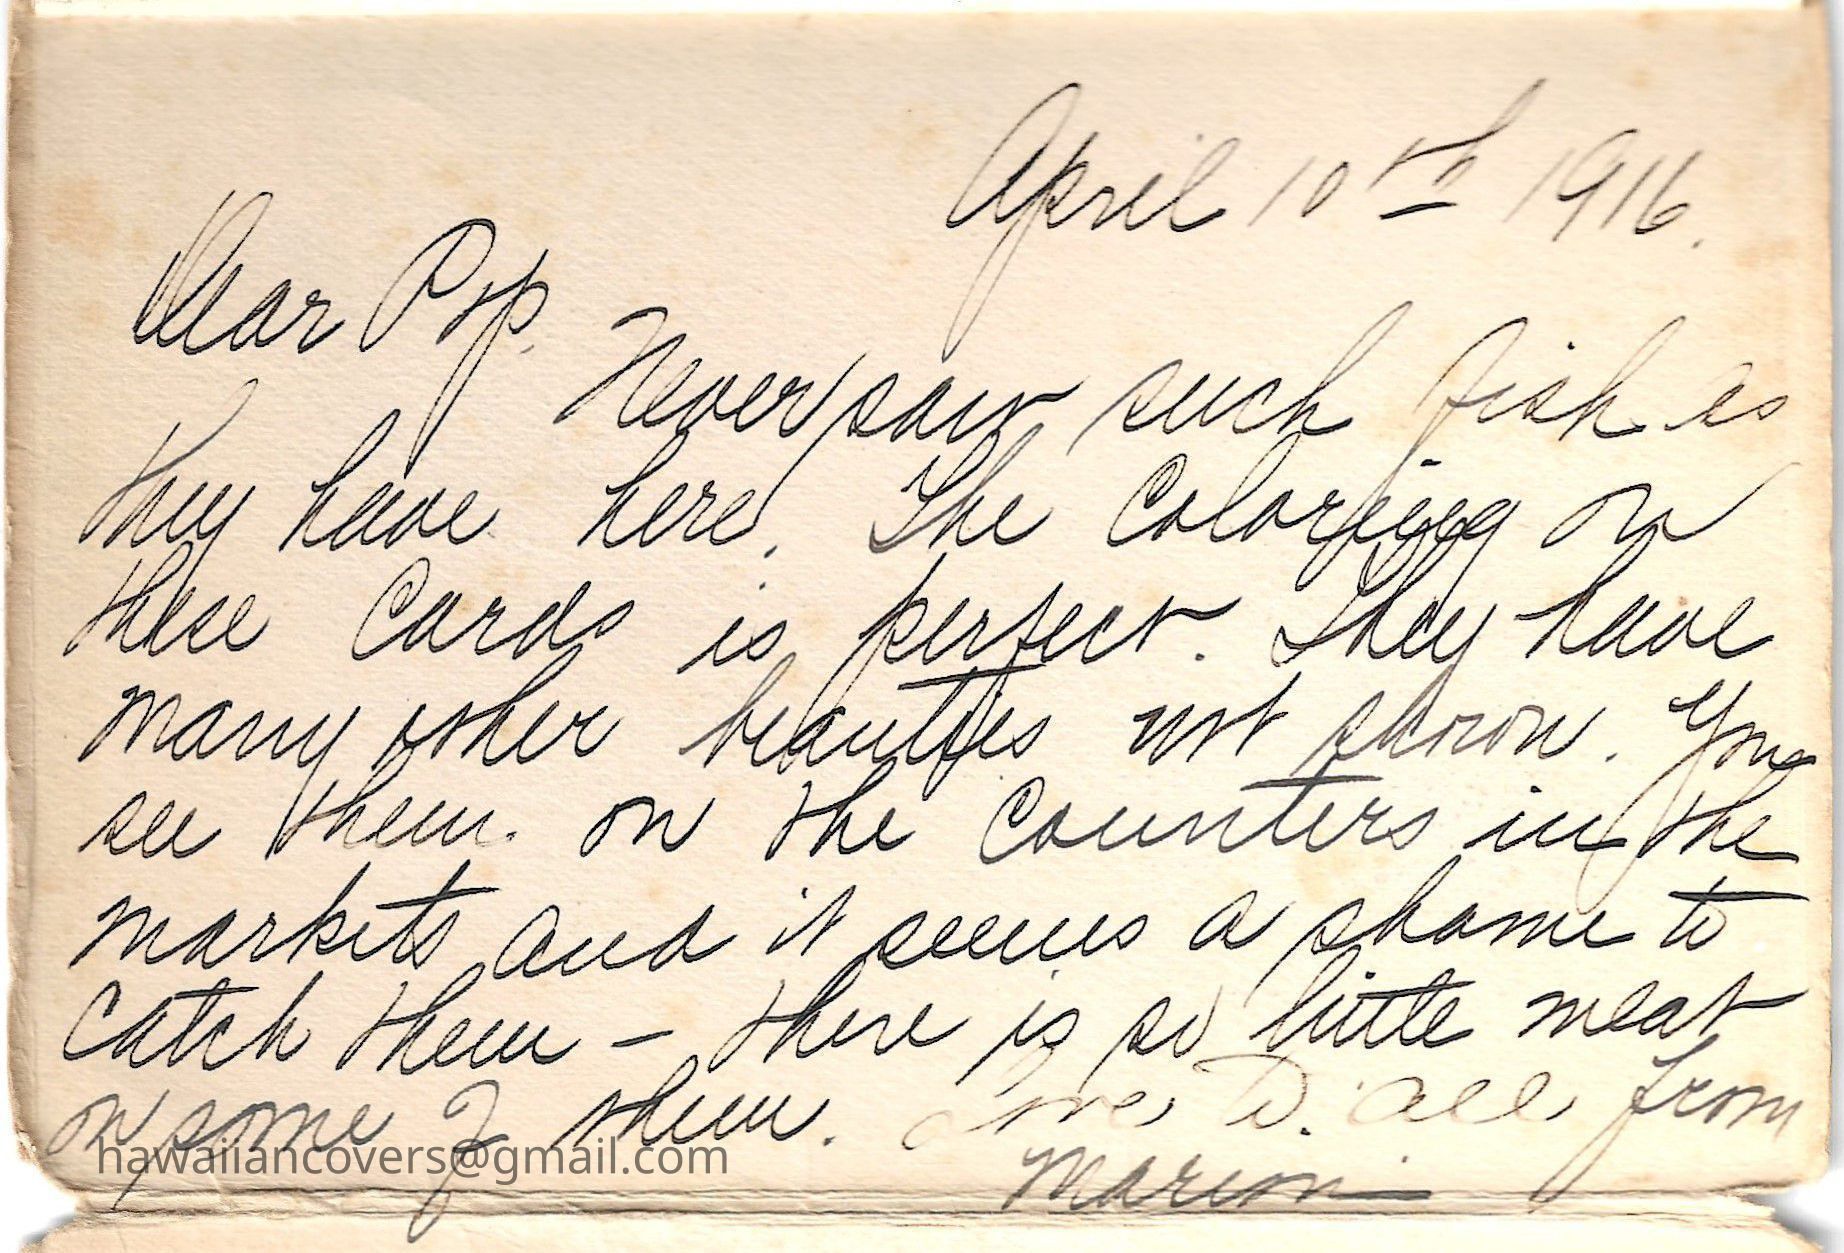 April 10th 1916.
Dear Pop.
Never saw such fish as
they have here. The Coloring on
these Cards is perfect. They have
many other beauties not shown. You
see them on the Counters in the
markets and it seems a shame to
Catch them – there is so little meat
on some of them. Love to all from
Marion
hawaiiancovers@gmail.com